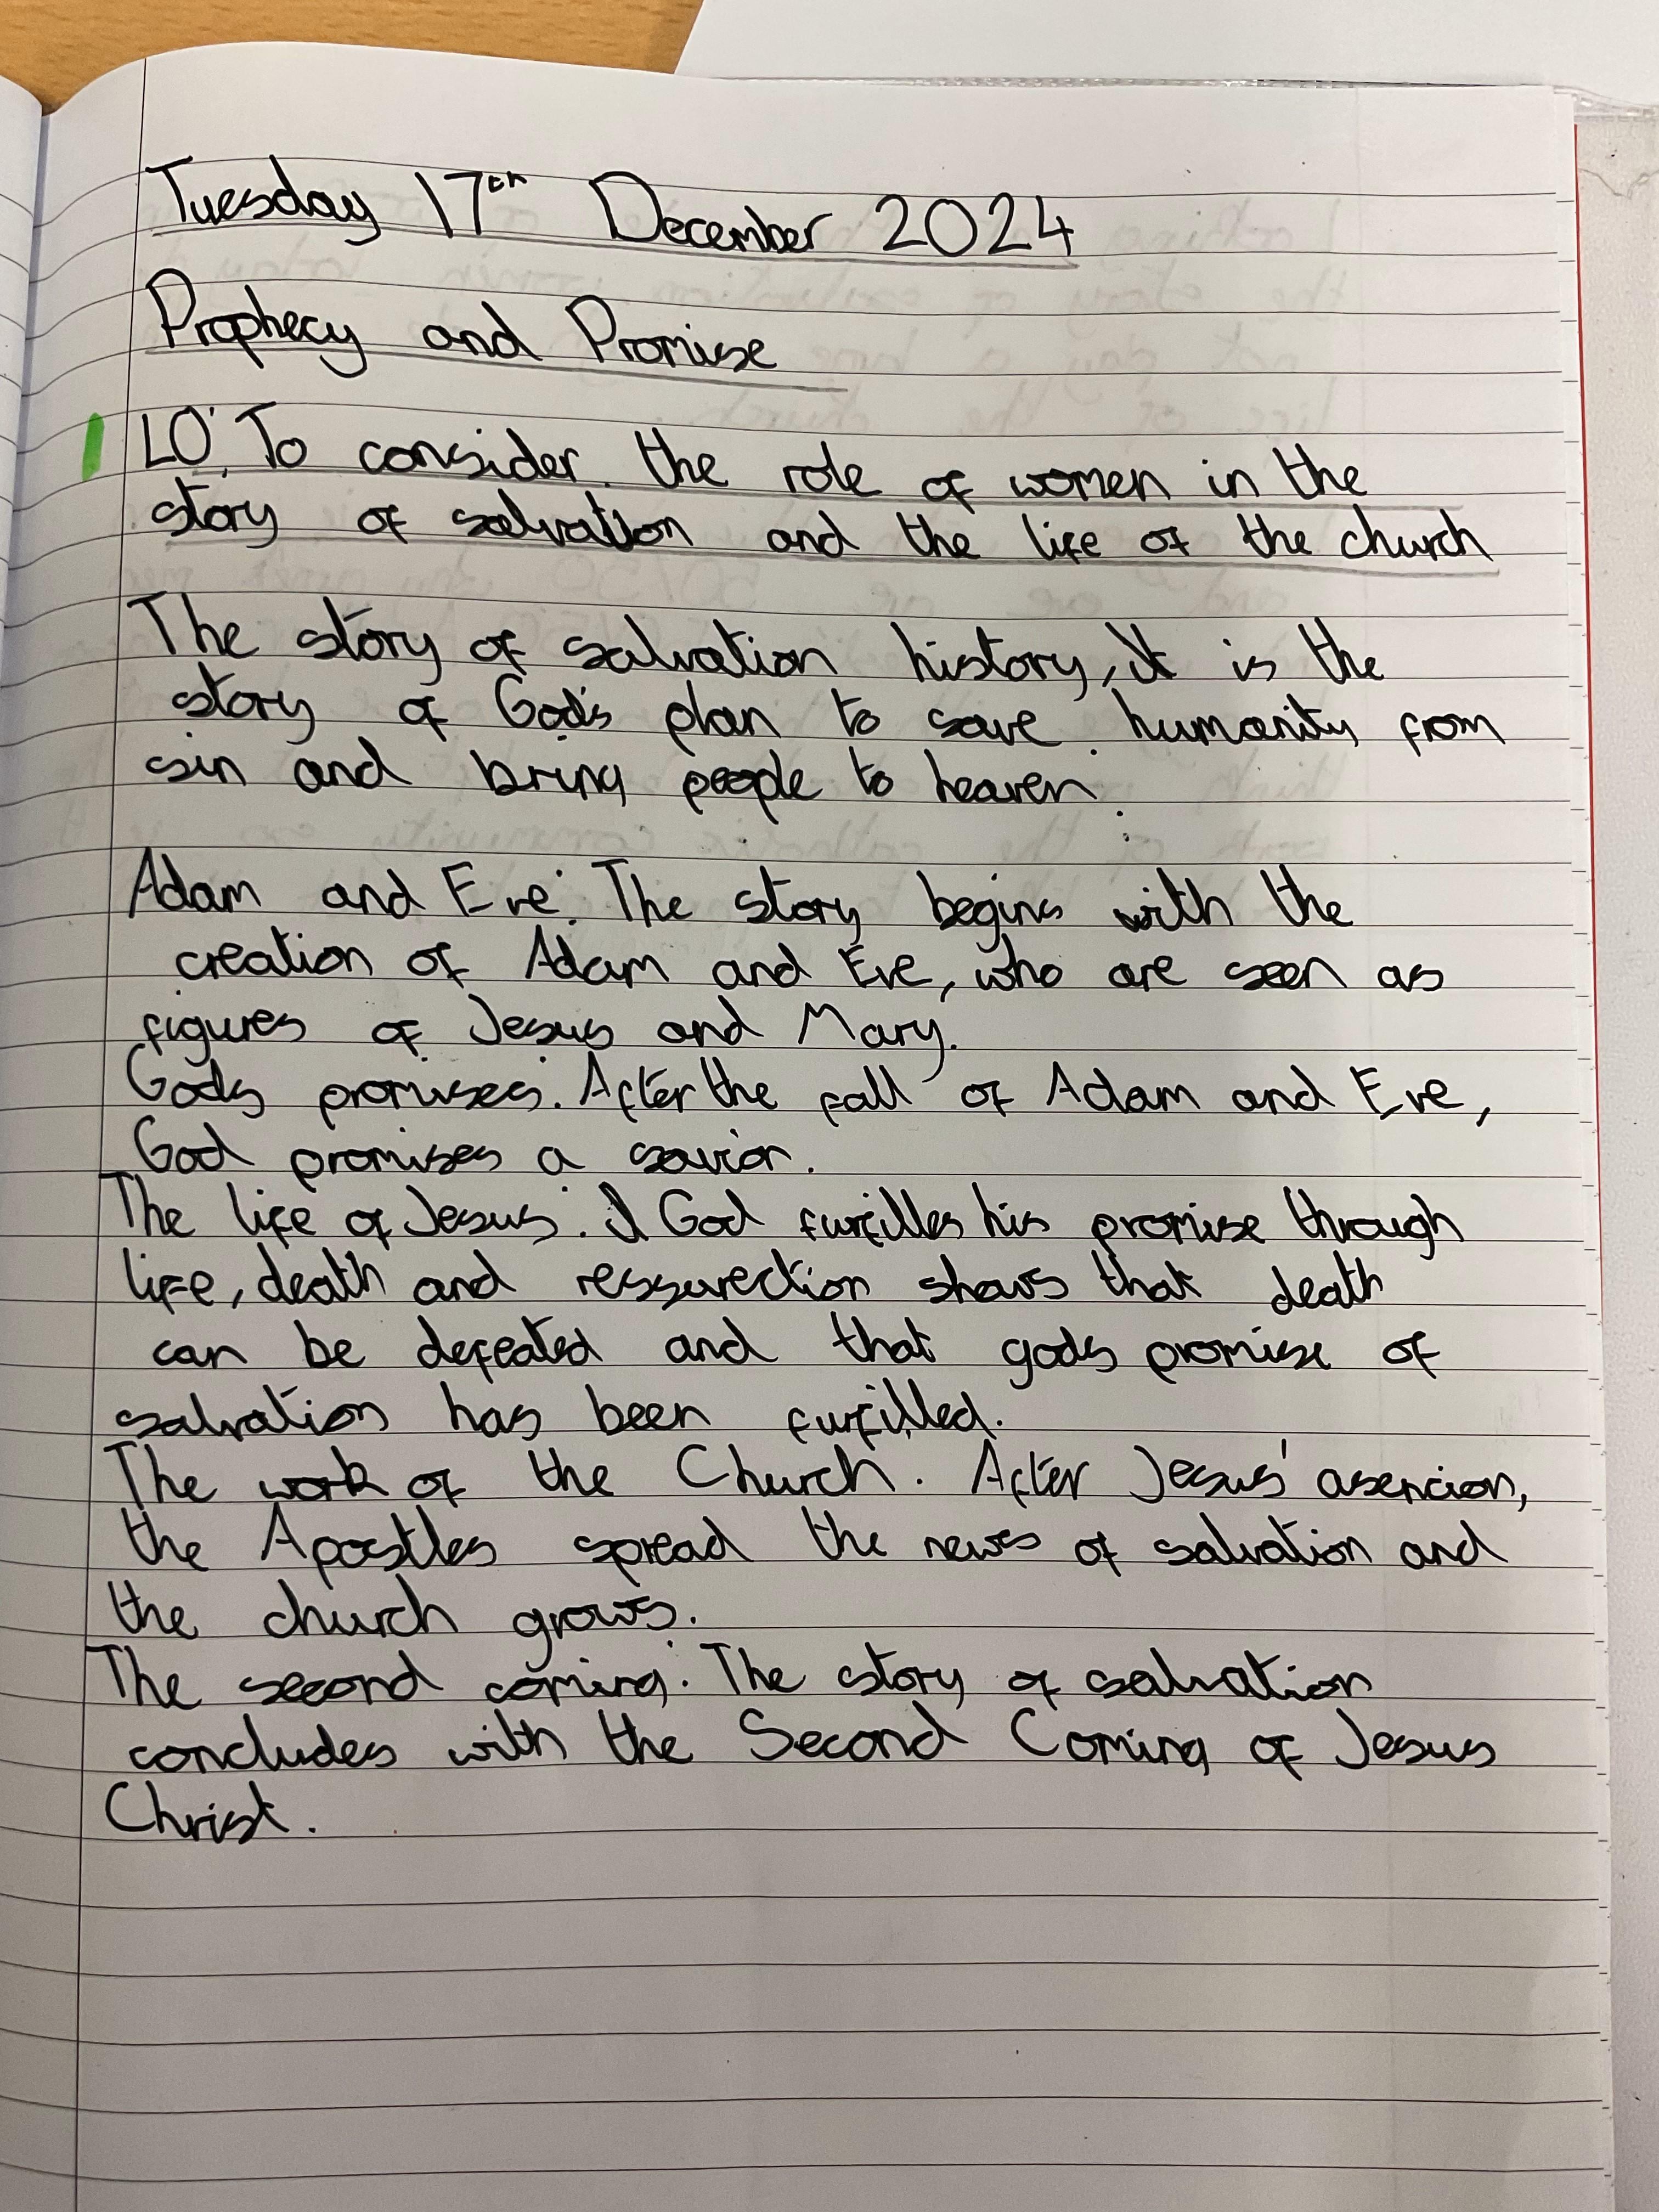 Tuesday 17th December 2024
Prophecy and Promise
LO: To consider the role of women in the
story of salvation and the life of the church
The story of salvation history, it is the
story of God's plan to save humanity from
sin and bring people to heaven.
Adam and Eve: The story begins with the
creation of Adam and Eve, who are seen as
figures of Jesus and Mary.
Gods promises: After the fall of Adam and Eve,
God promises a savior.
The life of Jesus: God furfilles his promise through
life, death and ressurection shows that death
can be defeated and that gods promise of
salvation has been furfilled.
The work of the Church. After Jesus' asencion,
the Apostles spread the news of salvation and
the church grows.
The second coming: The story of salvation
concludes with the Second Coming of Jesus
Christ.